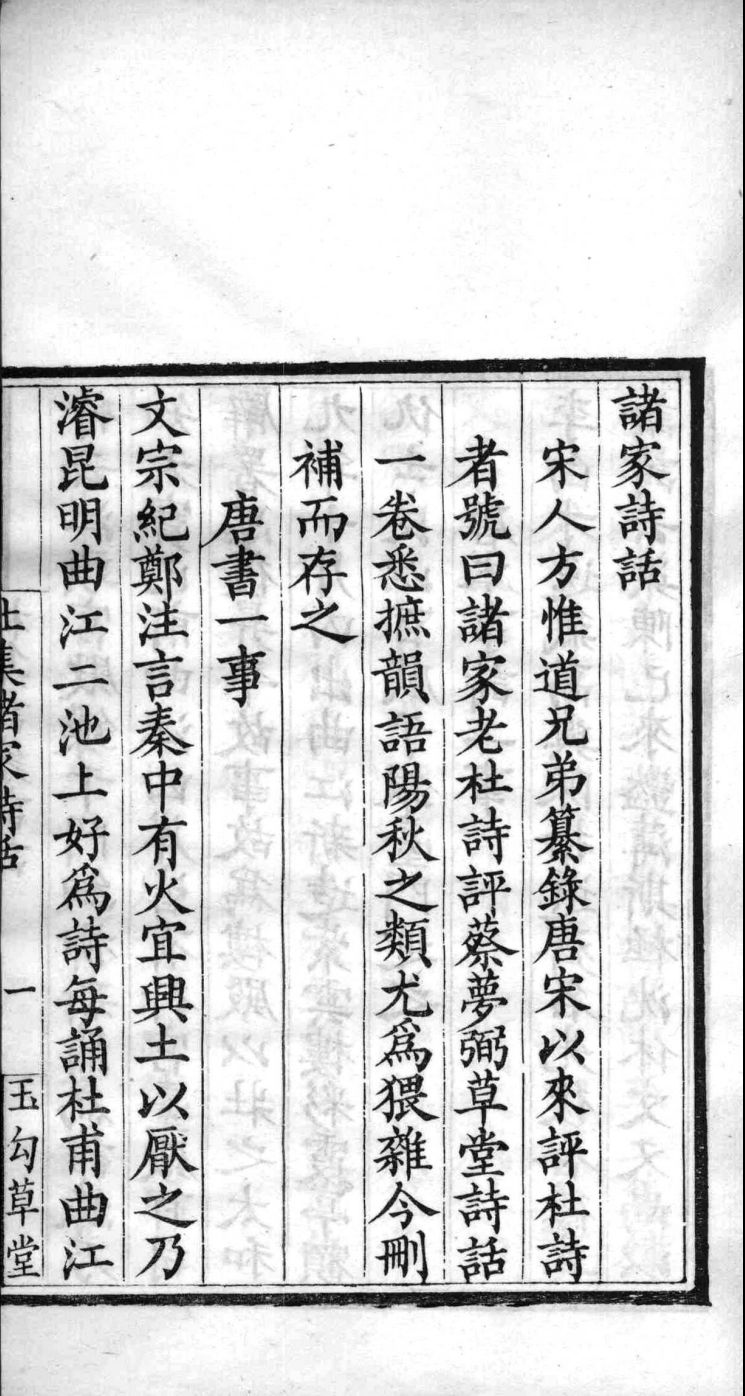 諸家詩話
宋人方惟道兄弟纂錄唐宋以來評杜詩
者號曰諸家老杜詩評蔡夢弼草堂詩話
一卷悉摭韻語陽秋之類尤爲猥雜今刪
補而存之
唐書一事
文宗紀鄭注言秦中有火宜興土以厭之乃
濬昆明曲江二池上好爲詩每誦杜甫曲江
集諸家詩話
一
玉勾草堂